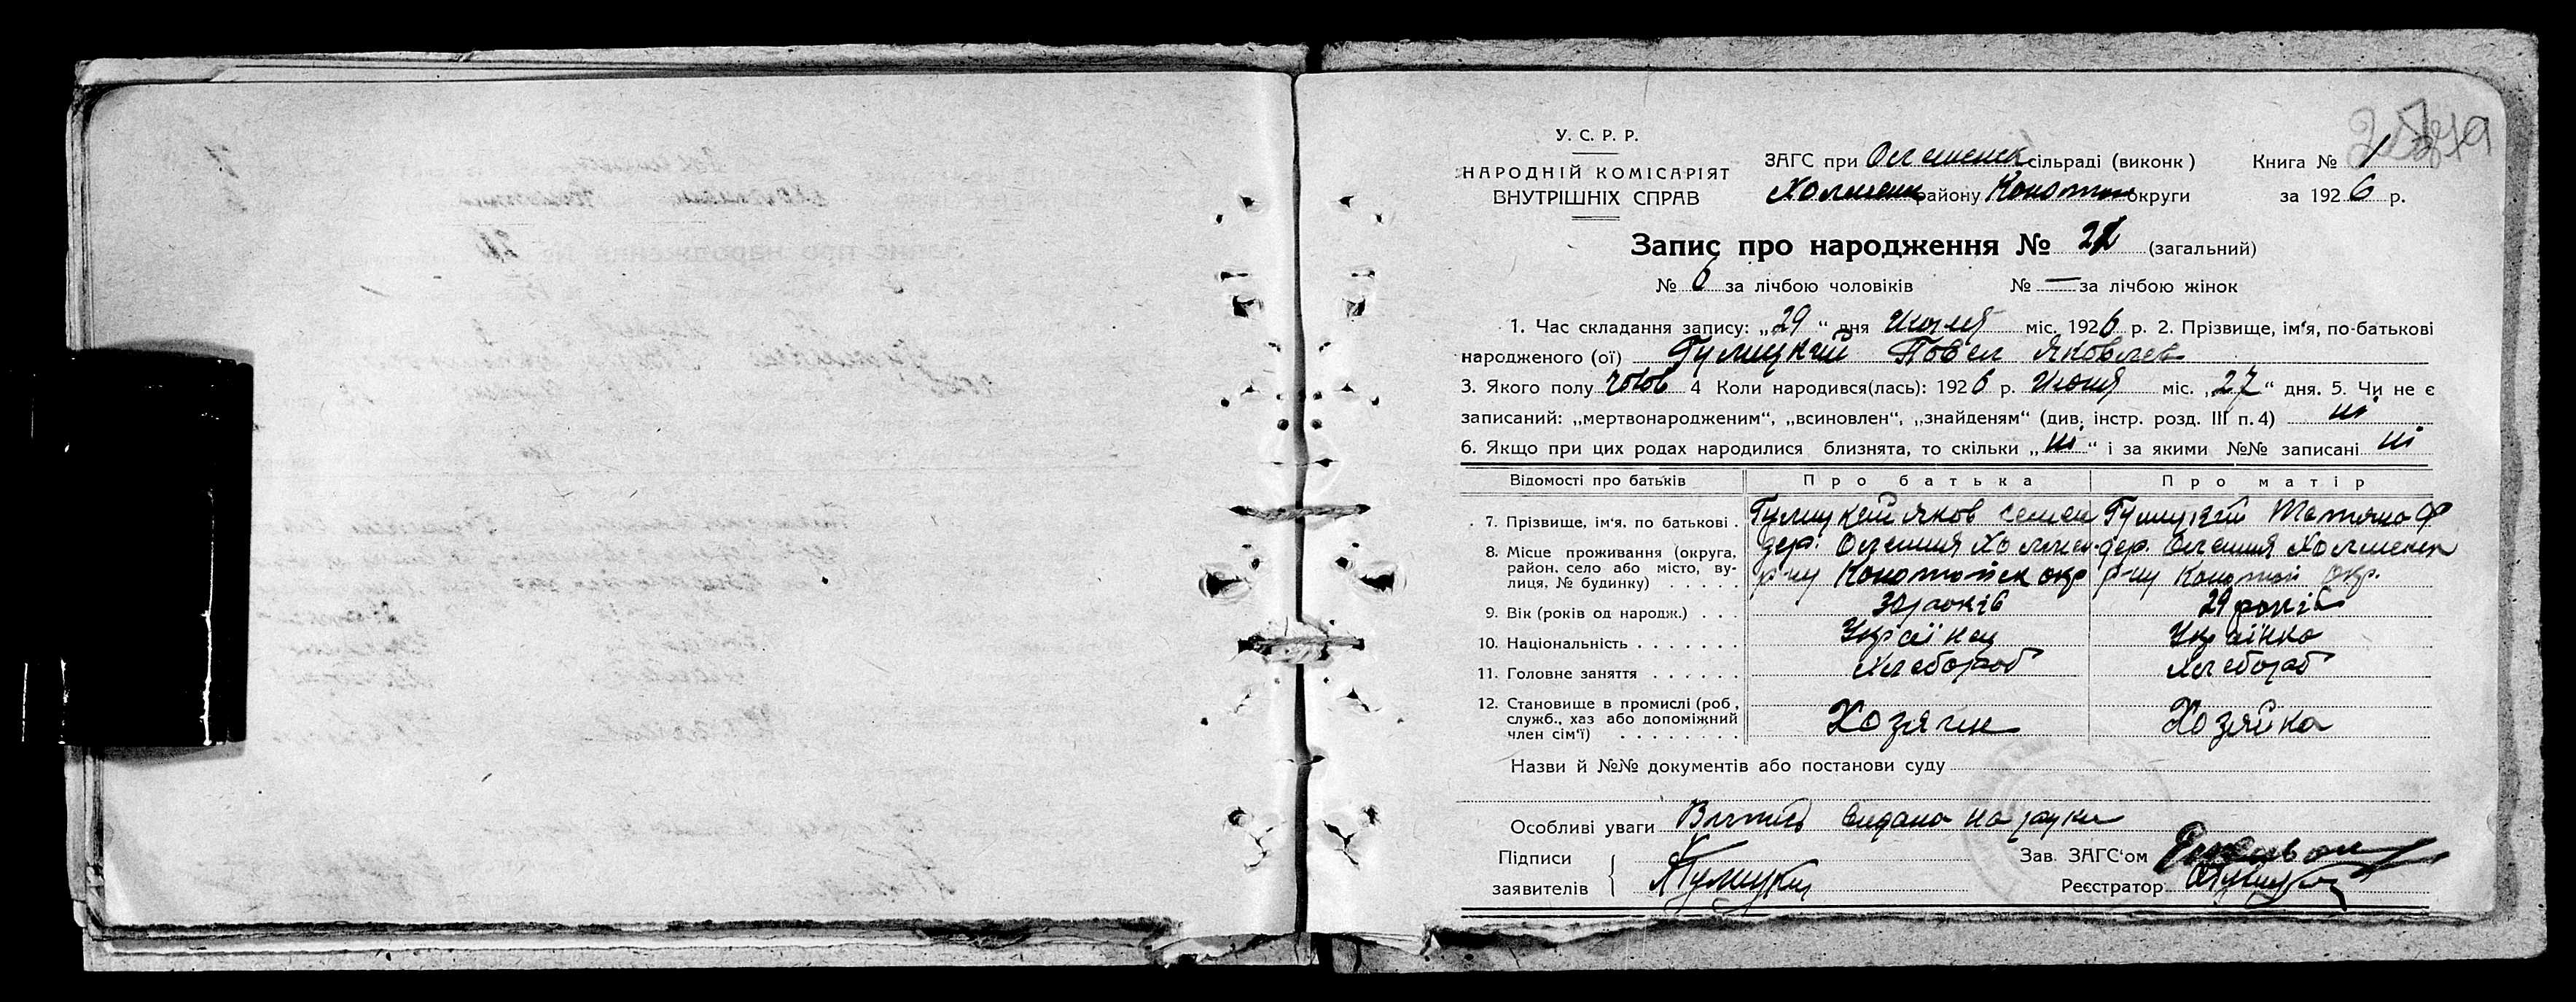 У. С. Р. Р.
НАРОДНІЙ КОМІСАРІЯТ
ВНУТРІШНІХ СПРАВ
ЗАГС при Олешенск сільраді (виконк)
Холменск району Конотоп округи
Книга № 1
за 1926 р.
Запис про народження № 21 (загальний)
№ 6 за лічбою чоловіків № — за лічбою жінок
1. Час складання запису: „29“ дня міс. 1926 р. 2. Прізвище, ім'я, по-батькові
народженого (ої) Гулицкий Повел Яковлев
3. Якого полу чолов 4 Коли народився(лась): 1926 р. Июня міс. „27“ дня. 5. Чи не є
записаний: „мертвонародженим“, „всиновлен“, „знайденям“ (див. інстр. розд. III п. 4) ні
6. Якщо при цих родах народилися близнята, то скільки „ні“ і за якими №№ записані ні
Відомості про батьків Про батька Про матір
7. Прізвище, ім'я, по батькові . Гулицкий Яков Семен Гулицкий Татяна Ф
8. Місце проживання (округа, дер. Олешня Холмен. дер. Олешня Холменск
район, село або місто, ву-
лиця, № будинку) . . . . . р-ну Конотопск окр р-ну Конотоп окр.
9. Вік (років од народж.) . . . 30 років 29 років
10. Національність . . . . . . . Українец Українка
11. Головне заняття . . . . . . Хлебороб Хлебороб
12. Становище в промислі (роб,
служб., хаз або допоміжний Хозяин Хозяйка
член сім'ї) . . . . . . . .
Назви й №№ документів або постанови суду
Особливі уваги видано на руки
Підписи
заявителів Гулицкий
Зав. ЗАГС'ом
Реєстратор